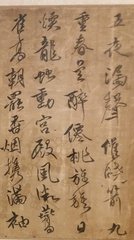 五夜漏聲催曉箭九
重春色醉僊桃旌旂日
煖龍蛇動宮殿風微鷰
雀高朝罷香烟携滿袖